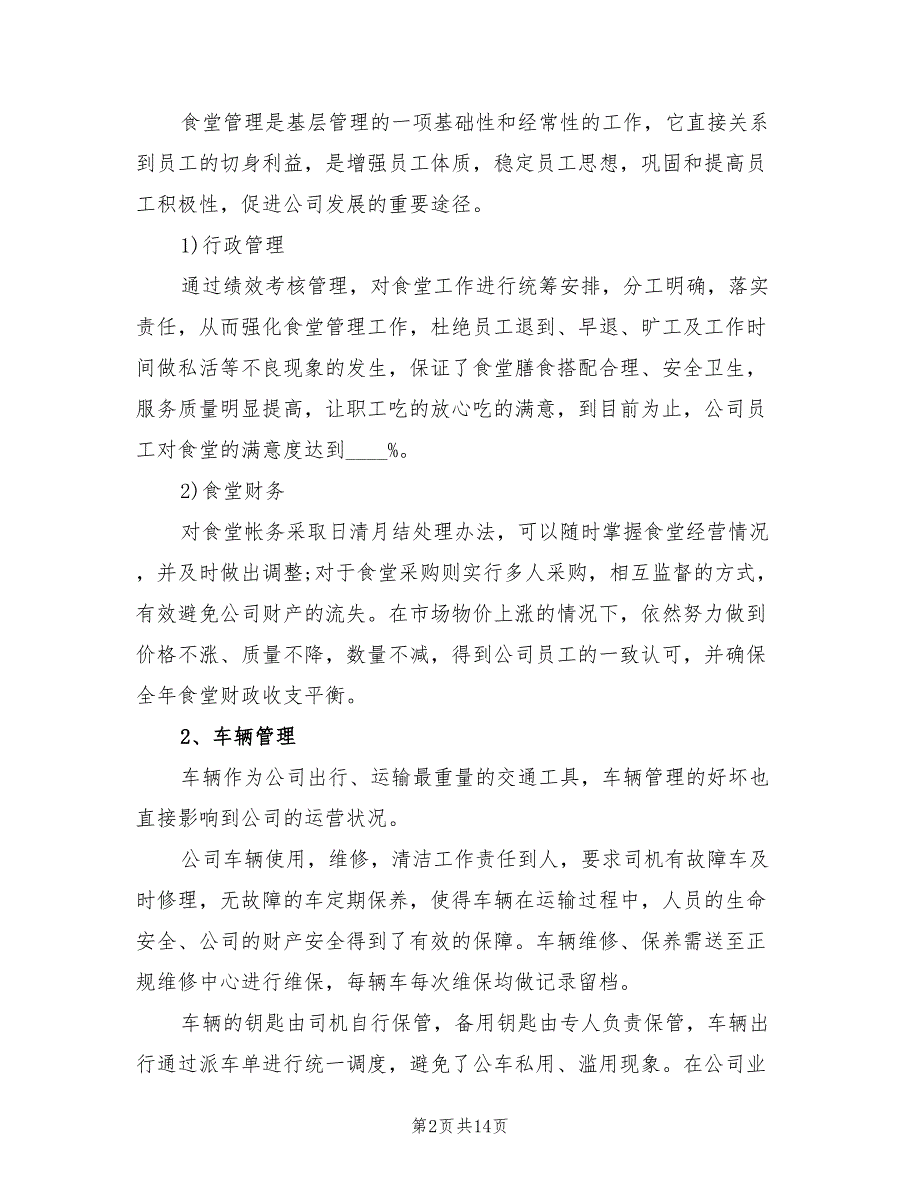 食堂管理是基层管理的一项基础性和经常性的工作，它直接关系
到员工的切身利益，是增强员工体质，稳定员工思想，巩固和提高员
工积极性，促进公司发展的重要途径。
1)行政管理
通过绩效考核管理，对食堂工作进行统筹安排，分工明确，落实
责任，从而强化食堂管理工作，杜绝员工退到、早退、旷工及工作时
间做私活等不良现象的发生，保证了食堂膳食搭配合理、安全卫生，
服务质量明显提高，让职工吃的放心吃的满意，到目前为止，公司员
工对食堂的满意度达到____%。
2)食堂财务
对食堂帐务采取日清月结处理办法，可以随时掌握食堂经营情况
，并及时做出调整;对于食堂采购则实行多人采购，相互监督的方式，
有效避免公司财产的流失。在市场物价上涨的情况下，依然努力做到
价格不涨、质量不降，数量不减，得到公司员工的一致认可，并确保
全年食堂财政收支平衡。
2、车辆管理
车辆作为公司出行、运输最重量的交通工具，车辆管理的好坏也
直接影响到公司的运营状况。
公司车辆使用，维修，清洁工作责任到人，要求司机有故障车及
时修理，无故障的车定期保养，使得车辆在运输过程中，人员的生命
安全、公司的财产安全得到了有效的保障。车辆维修、保养需送至正
规维修中心进行维保，每辆车每次维保均做记录留档。
车辆的钥匙由司机自行保管，备用钥匙由专人负责保管，车辆出
行通过派车单进行统一调度，避免了公车私用、滥用现象。在公司业
第2页共14页